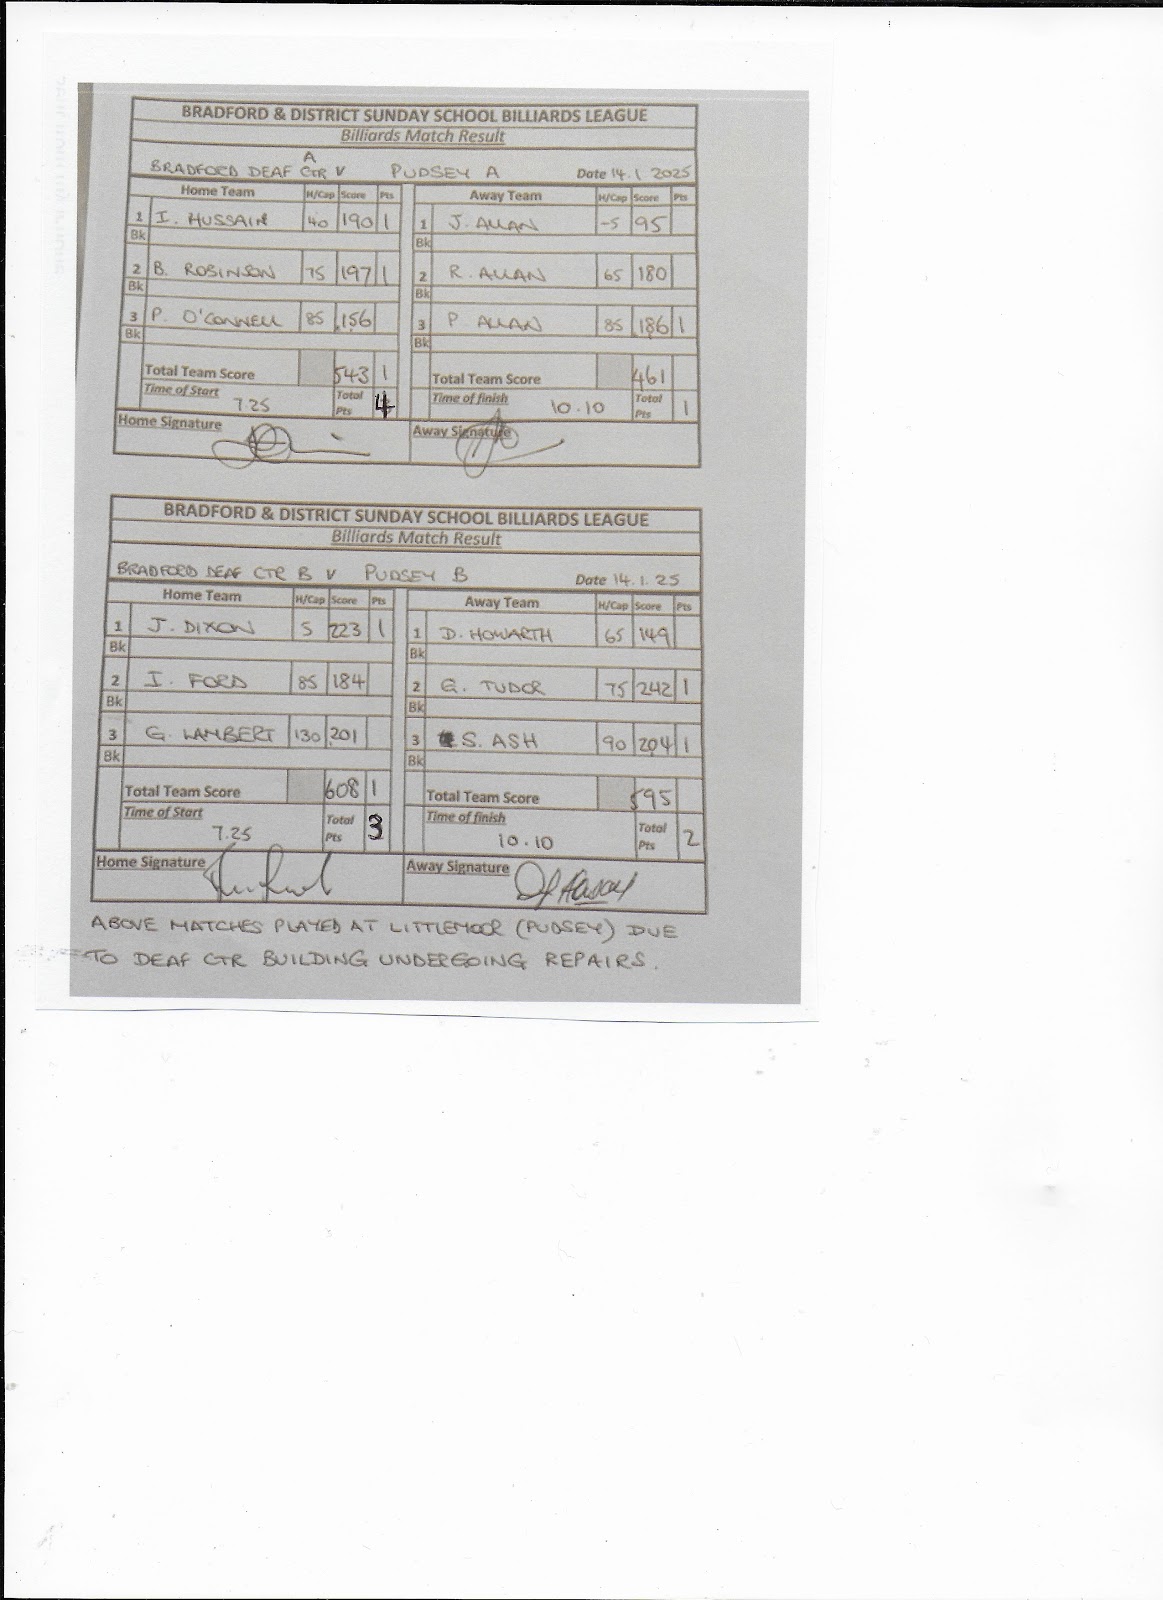 BRADFORD & DISTRICT SUNDAY SCHOOL BILLIARDS LEAGUE
Billiards Match Result
BRADFORD DEAF A CTR V PUDSEY A Date 14.1 2025
Home Team H/Cap Score Pts Away Team H/Cap Score Pts
1 I. HUSSAIN 40 190 1 1 J. ALLAN -5 95
Bk Bk
2 B. ROBINSON 75 197 1 2 R. ALLAN 65 180
Bk Bk
3 P. O'CONNELL 85 156 3 P ALLAN 85 186 1
Bk Bk
Total Team Score 543 1 Total Team Score 461
Time of Start 7.25 Total Pts 4 Time of finish 10.10 Total Pts 1
Home Signature Away Signature
BRADFORD & DISTRICT SUNDAY SCHOOL BILLIARDS LEAGUE
Billiards Match Result
BRADFORD DEAF CTR B V PUDSEY B Date 14.1.25
Home Team H/Cap Score Pts Away Team H/Cap Score Pts
1 J. DIXON 5 223 1 1 D. HOWARTH 65 149
Bk Bk
2 I. FORD 85 184 2 G. TUDOR 75 242 1
Bk Bk
3 G. LAMBERT 130 201 3 S. ASH 90 204 1
Bk Bk
Total Team Score 608 1 Total Team Score 595
Time of Start 7.25 Total Pts 3 Time of finish 10.10 Total Pts 2
Home Signature Away Signature
ABOVE MATCHES PLAYED AT LITTLEMOOR (PUDSEY) DUE
TO DEAF CTR BUILDING UNDERGOING REPAIRS.